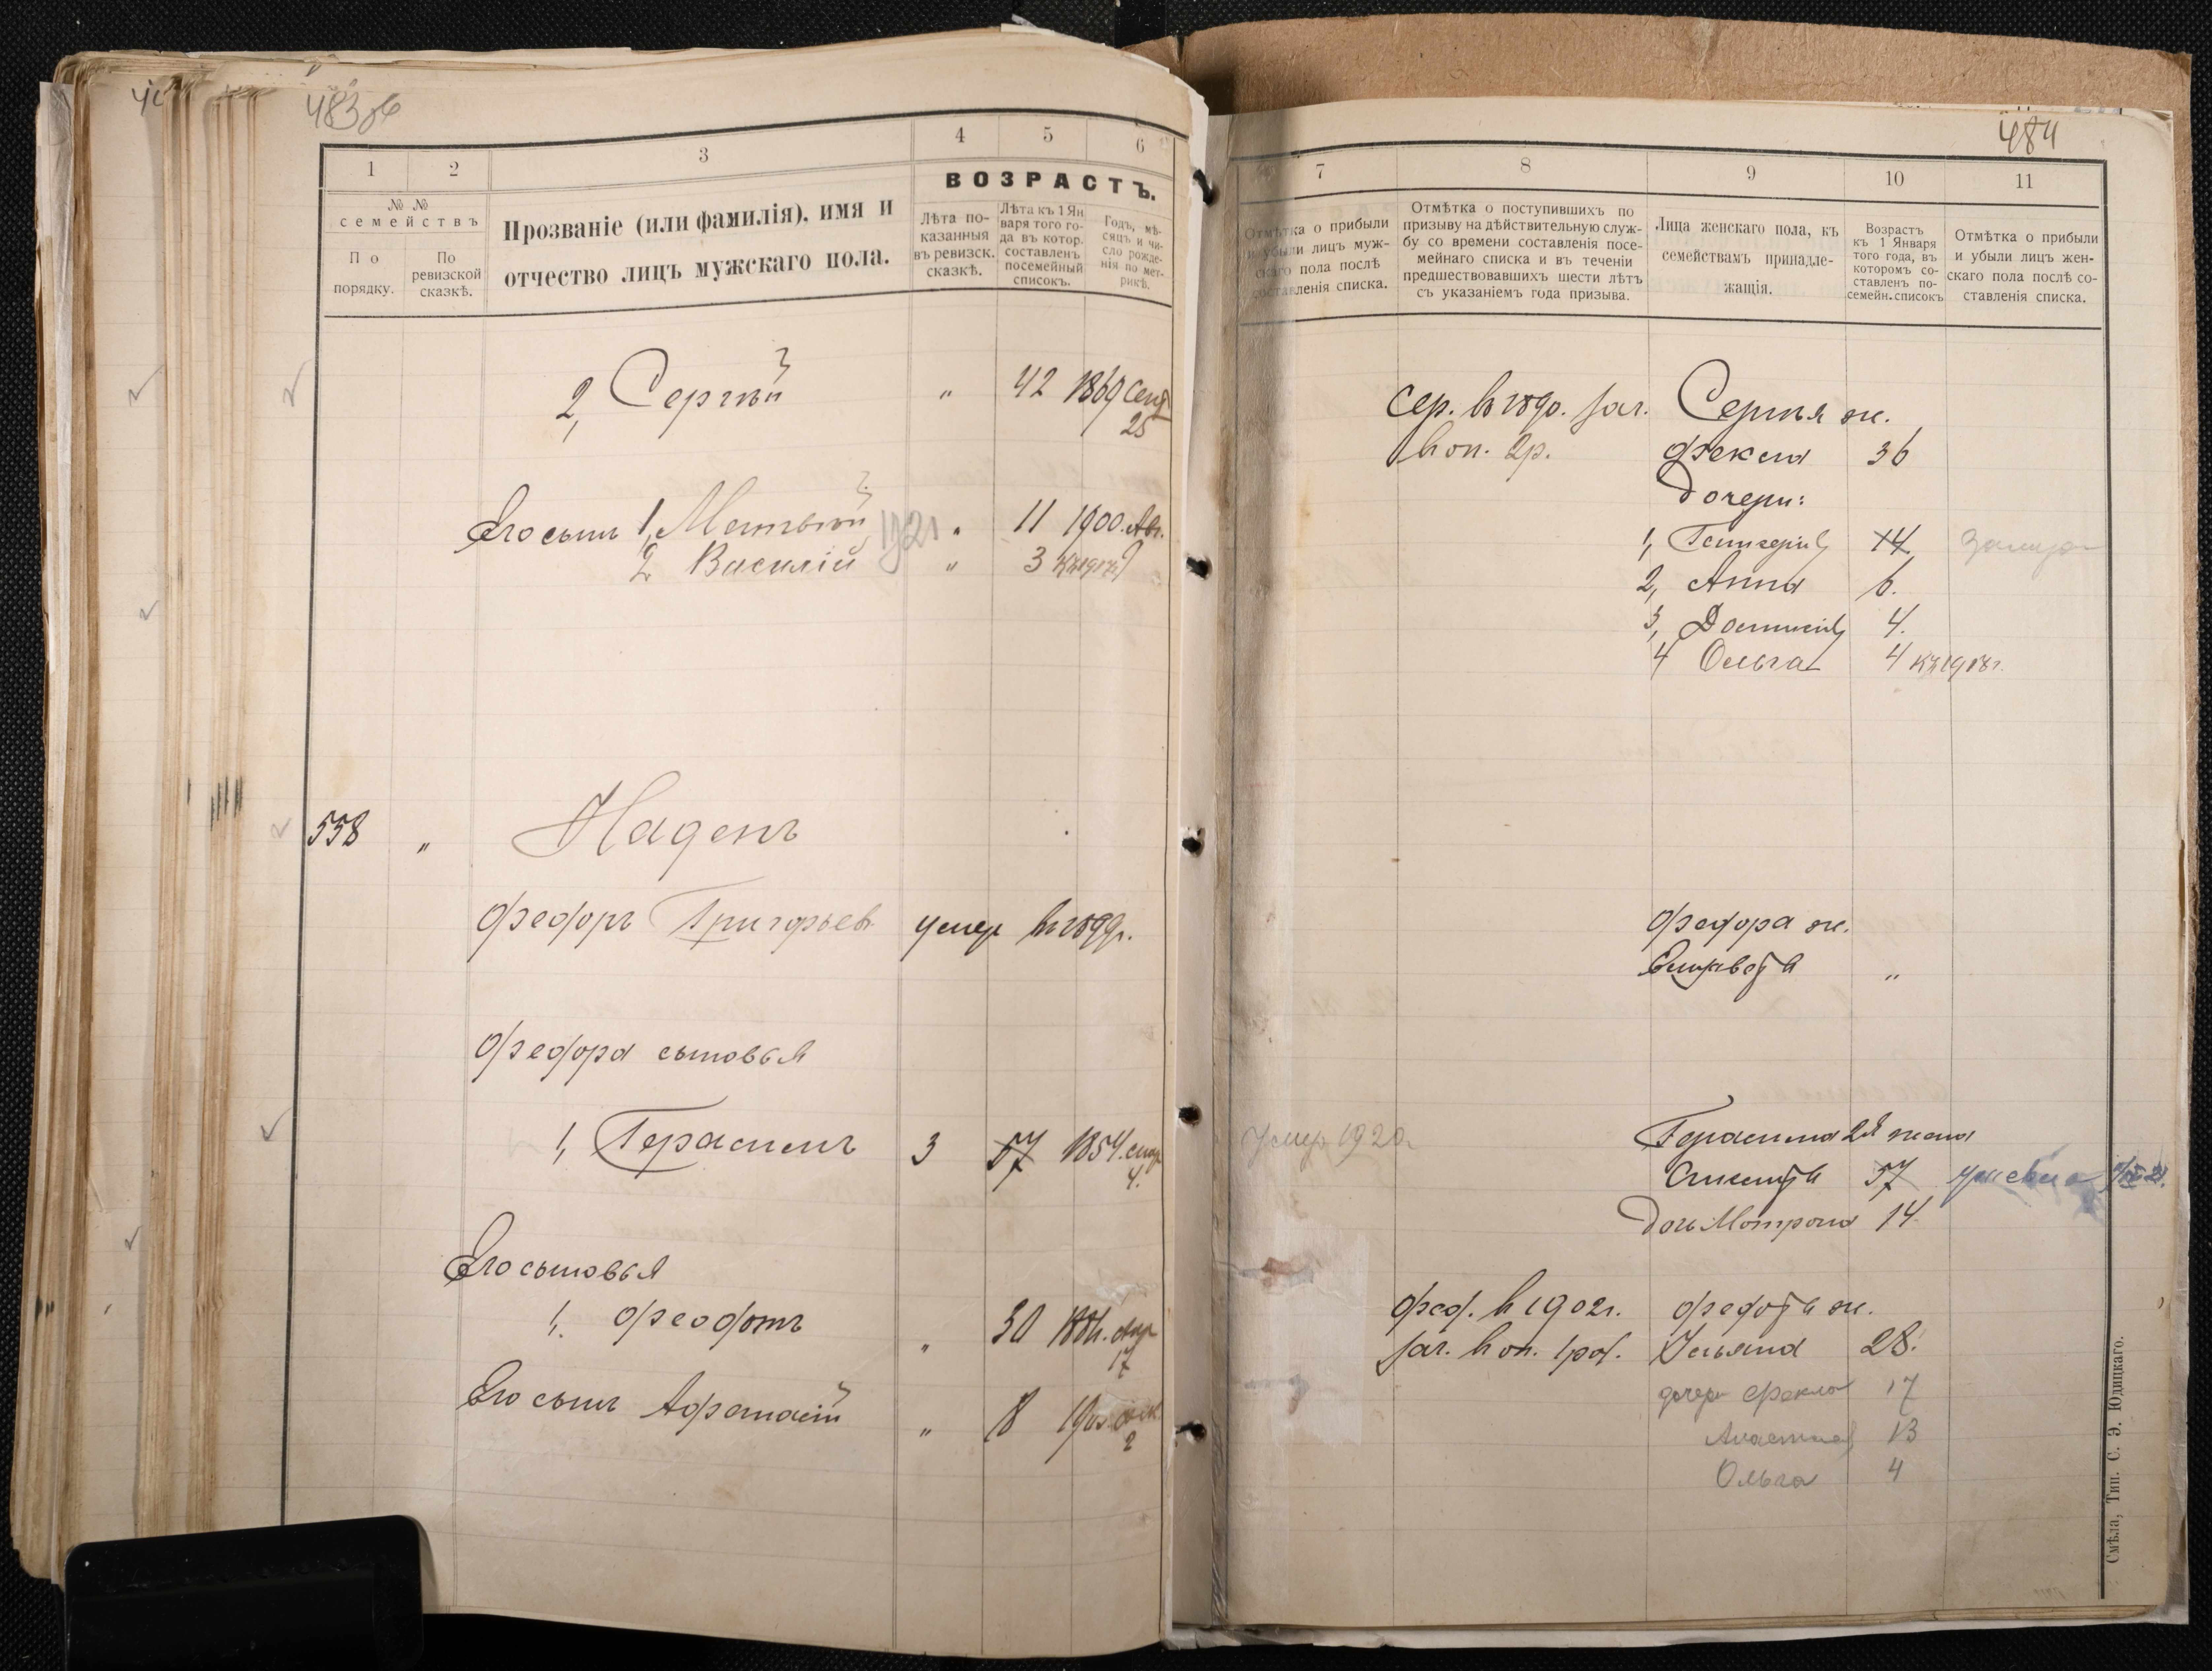 483 об
1 2 3 4 5 6
№ №
семействъ
По порядку.
По ревизской сказкѣ.
Прозваніе (или фамилія), имя и
отчество лицъ мужскаго пола.
ВОЗРАСТЪ.
Лѣта по-
казанныя
въ ревизск.
сказкѣ.
Лѣта къ 1 Ян
варя того го-
да въ котор.
составленъ
посемейный
списокъ.
Годъ, мѣ-
сяцъ и чи-
сло рожде-
нія по мет-
рикѣ.
2, Сергѣй " 42 1869 Сент
25
Его сынъ 1, 11 1900. Авг.
2 Василій " 3
558 " Наденъ
Федоръ Григорьев умер въ 1899г.
Федора сыновья
1, Герасимъ 3 57 1854.
4.
Его сыновья
1. Федотъ " 30 1881. Апр
17
Его сынъ Афанасій " 8
2
484
7 8 9 10 11
Отмѣтка о прибыли
и убыли лицъ муж-
скаго пола послѣ
составленія списка.
Отмѣтка о поступившихъ по
призыву на дѣйствительную служ-
бу со времени составленія посе-
мейнаго списка и въ теченіи
предшествовавшихъ шести лѣтъ
съ указаніемъ года призыва.
Лица женскаго пола, къ
семействамъ принадле-
жащія.
Возрастъ
къ 1 Января
того года, въ
которомъ со-
ставленъ по-
семейн. списокъ
Отмѣтка о прибыли
и убыли лицъ жен-
скаго пола послѣ со-
ставленія списка.
Сер. въ 1890. зач. Сергѣя ж.
в оп. 2р. Фекла 36
Дочери:
1, 14
2, Анна 6.
3, 4.
4 Ольга 4 къ 1918г.
Федора ж.
Елизавета "
Умер 1920г Герасима 2я жена
57
Дочь Матрона 14
Фед. в 1902г. Федота ж.
зач. в оп. 1 раз. Ульяна 28.
дочери Фекла 17
13
Ольга 4
Смѣла, Тип. С. Э. Юдицкаго.